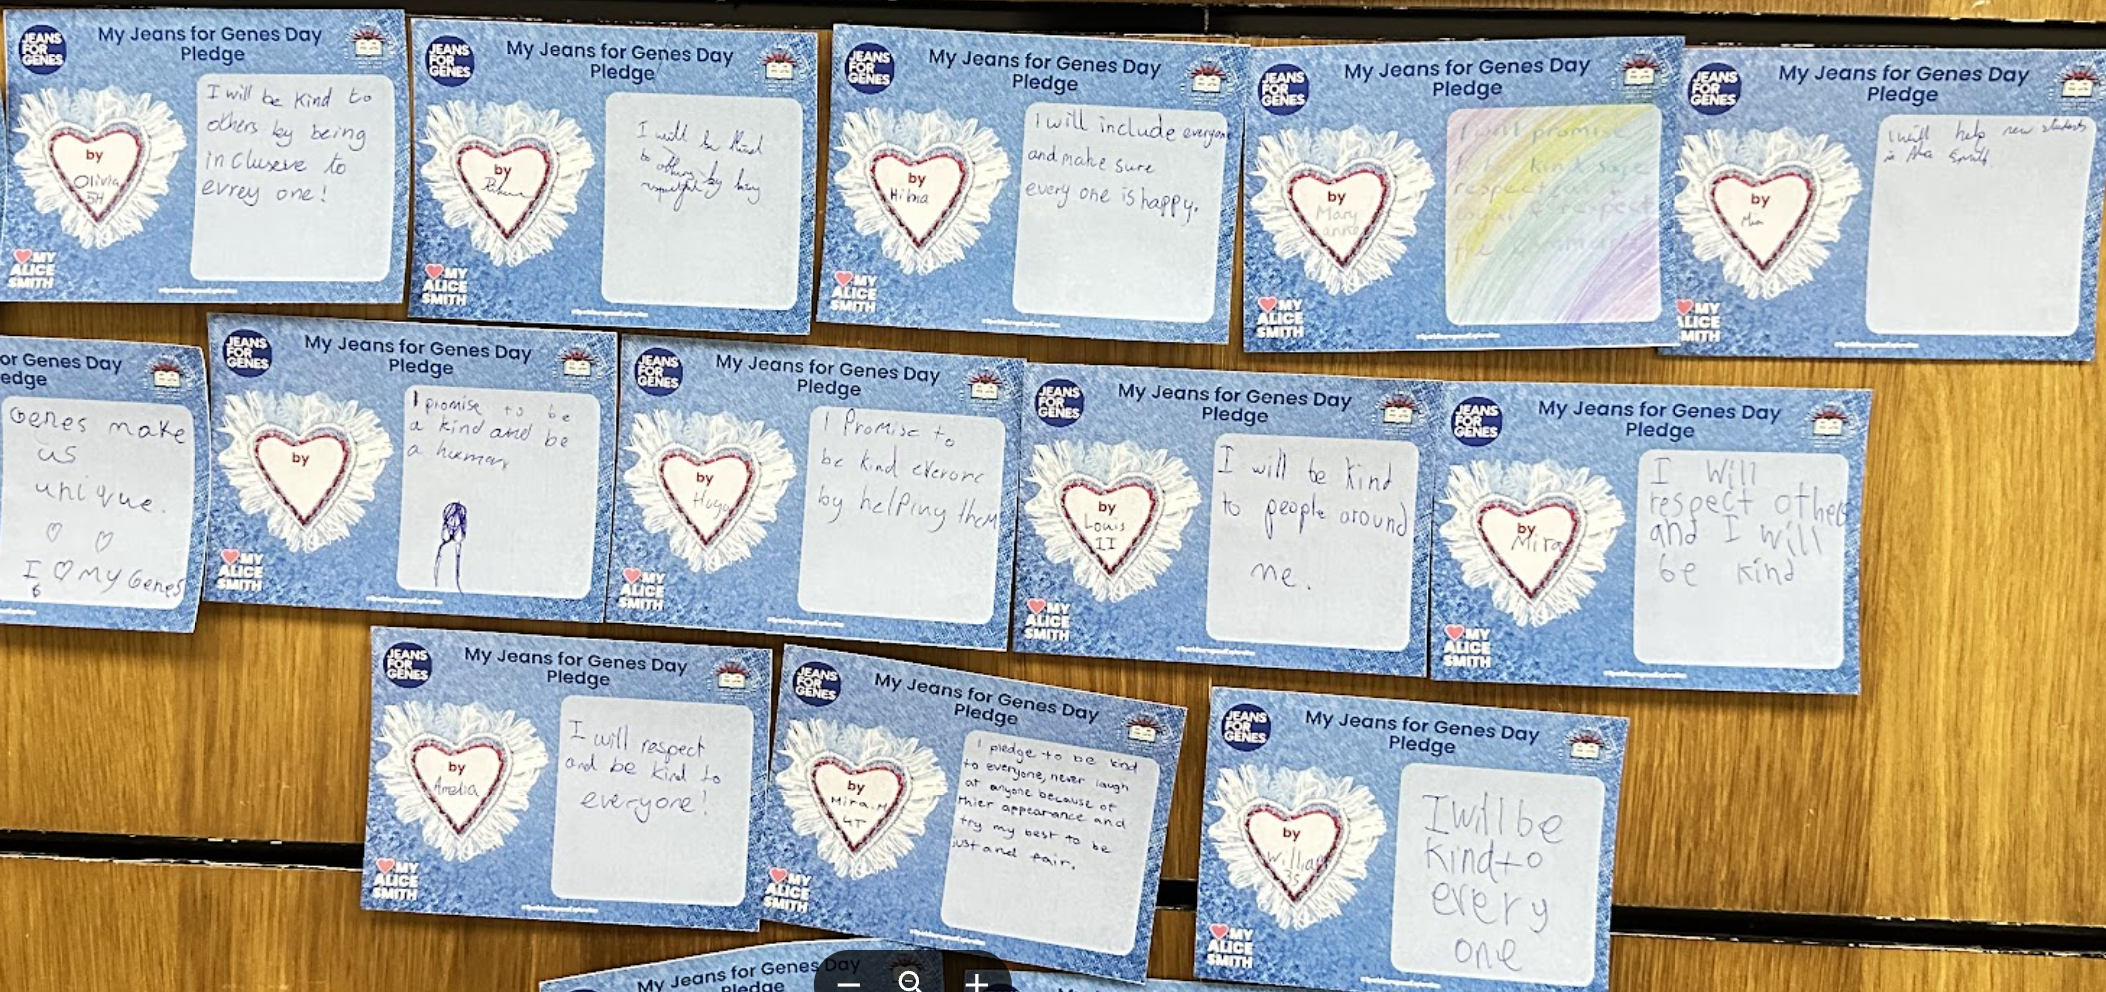 JEANS
FOR
GENES
My Jeans for Genes Day
Pledge
I will be kind to
others by being
incluseve to
evrey one!
by
Olivia
5H
MY
ALICE
SMITH
JEANS
FOR
GENES
My Jeans for Genes Day
Pledge
I will be kind
to others by being
respectful
by
MY
ALICE
SMITH
JEANS
FOR
GENES
My Jeans for Genes Day
Pledge
I will include everyone
and make sure
every one is happy.
by
Hibia
MY
ALICE
SMITH
JEANS
FOR
GENES
My Jeans for Genes Day
Pledge
I will promise
to be kind safe
respect
loyal & respect
the
by
Mary
anne
MY
ALICE
SMITH
JEANS
FOR
GENES
My Jeans for Genes Day
Pledge
I will help new students
in Alice Smith
by
Mia
MY
ALICE
SMITH
or Genes Day
edge
Genes make
us
unique.
I ♡ My Genes
JEANS
FOR
GENES
My Jeans for Genes Day
Pledge
I promise to be
a kind and be
a human
by
MY
ALICE
SMITH
JEANS
FOR
GENES
My Jeans for Genes Day
Pledge
I Promise to
be kind everone
by helping them
by
Hugo
MY
ALICE
SMITH
JEANS
FOR
GENES
My Jeans for Genes Day
Pledge
I will be kind
to people around
me.
by
Louis
II
MY
ALICE
SMITH
JEANS
FOR
GENES
My Jeans for Genes Day
Pledge
I Will
respect others
and I will
be kind
by
Mira
MY
ALICE
SMITH
JEANS
FOR
GENES
My Jeans for Genes Day
Pledge
I will respect
and be kind to
everyone!
by
Amelia
MY
ALICE
SMITH
JEANS
FOR
GENES
My Jeans for Genes Day
Pledge
I pledge to be kind
to everyone, never laugh
at anyone because of
thier appearance and
try my best to be
just and fair.
by
Mira.M
4T
MY
ALICE
SMITH
JEANS
FOR
GENES
My Jeans for Genes Day
Pledge
I will be
kind to
every
one
by
William
3S
MY
ALICE
SMITH
My Jeans for Genes Day
Pledge